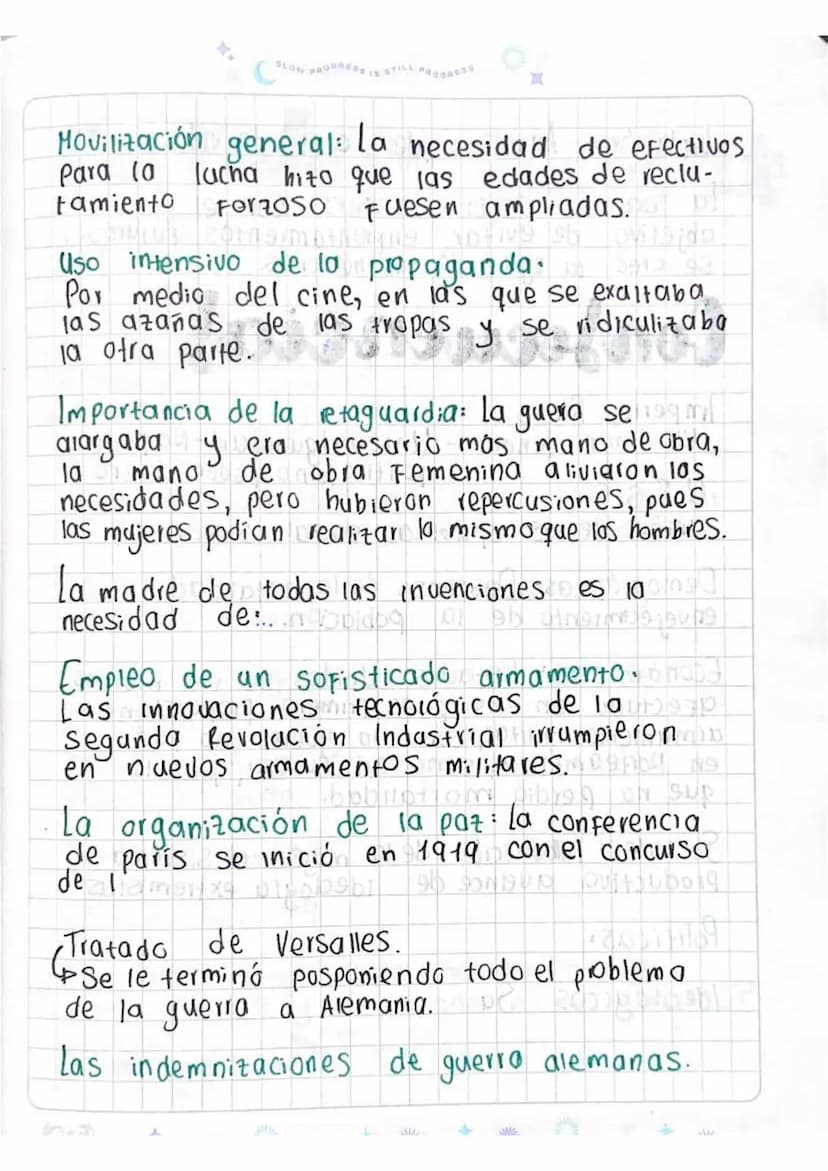 SLOW PROGRESS IS STILL PROGRESS
Movilización general: La necesidad de efectivos
para la lucha hizo que las edades de reclu-
tamiento forzoso fuesen ampliadas.
Uso intensivo de la propaganda.
Por medio del cine, en las que se exaltaba
las azañas de las tropas y se ridiculizaba
la otra parte.
Importancia de la retaguardia: La guera se
alargaba y era necesario mas mano de obra,
la mano de obra femenina aliviaron las
necesidades, pero hubieron repercusiones, pues
las mujeres podían realizar lo mismo que los hombres.
La madre de todas las invenciones es la
necesidad de:..
Empleo de un sofisticado armamento.
Las innovaciones tecnológicas de la
segunda Revolución Industrial irrumpieron
en nuevos armamentos militares.
La organización de la paz: La conferencia
de parís se inició en 1919 con el concurso
de l
Tratado de Versalles.
↳ Se le terminó posponiendo todo el problema
de la guerra a Alemania.
Las indemnizaciones de guerra alemanas.